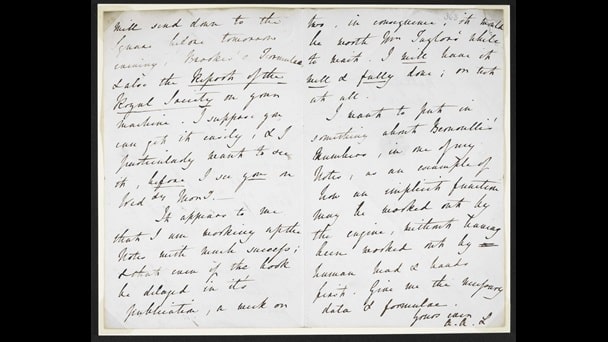 will send down to the
Square before tomorrow
evening, Brooke's Formulae,
& also the Report of the
Royal Society on your
machine. I suppose you
can get it easily, & I
particularly want to see
it, before I see you on
Wed dy Morng.—
It appears to me
that I am working up the
Notes with much success;
& that even if the book
be delayed in its
publication, a week or
two, in consequence, it would
be worth Mr Taylor's while
to wait. I will have it
well & fully done; or not
at all.
I want to put in
something about Bernoulli's
Numbers, in one of my
Notes, as an example of
how an implicit function
may be worked out by
the engine, without having
been worked out by
human head & hands
first. Give me the necessary
data & formulae.
Yours ever
A. A. L